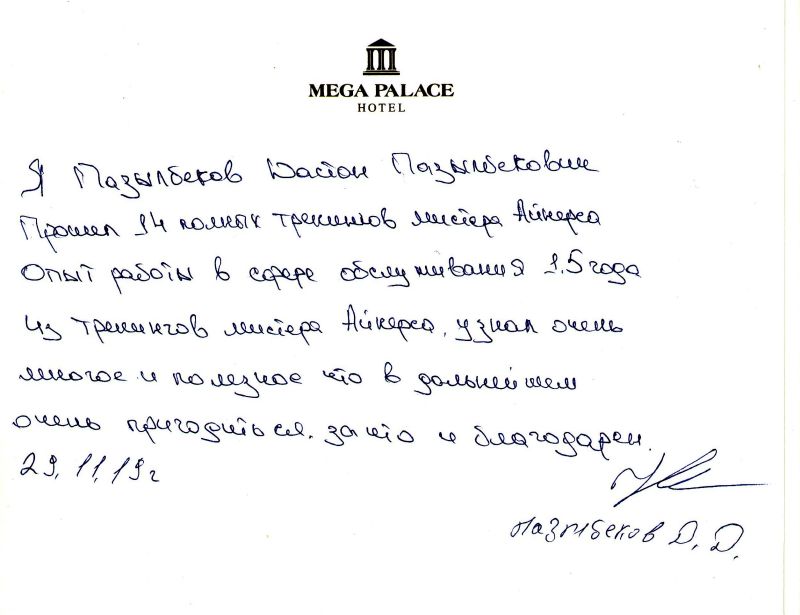 MEGA PALACE
HOTEL
Я Пазылбеков Дастон Пазылбекович
Прошел 14 полных тренингов мистера Айкерса
Опыт работы в сфере обслуживания 1.5 года
Из тренингов мистера Айкерса, узнал очень
многое и полезное что в дальнейшем
очень пригодиться. за что и благодарен.
29.11.19г
Пазылбеков Д. Д.